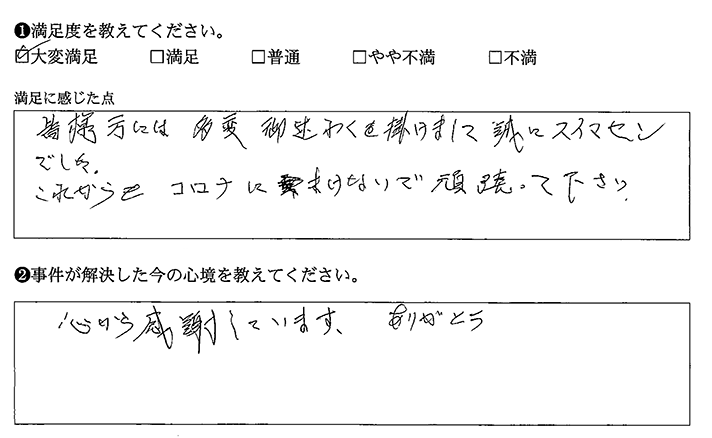 ❶満足度を教えてください。
☑大変満足 □満足 □普通 □やや不満 □不満
満足に感じた点
皆様方には 多変 御迷わくを掛けまして 誠に スイマセン
でした。
これからも コロナに まけないで 頑張って下さい
❷事件が解決した今の心境を教えてください。
心から感謝しています、 ありがとう